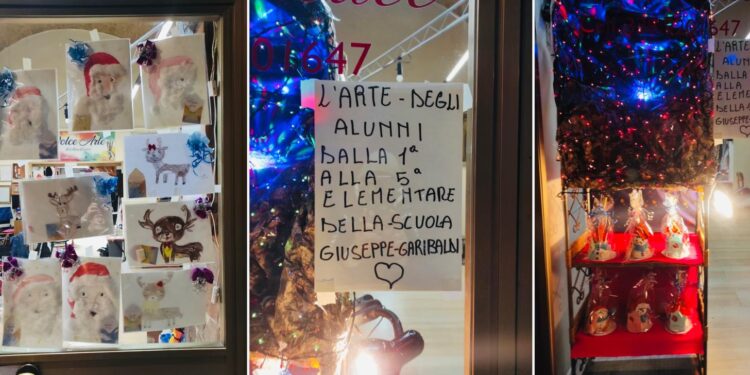 Dolce Arte
01647
L'ARTE - DEGLI
ALUNNI
DALLA 1ª
ALLA 5ª
ELEMENTARE
DELLA SCUOLA
GIUSEPPE-GARIBALDI
647
L'ARTE
ALUNNI
DALLA
ALLA 5
ELEMEN
DELLA S
GIUSEPPE